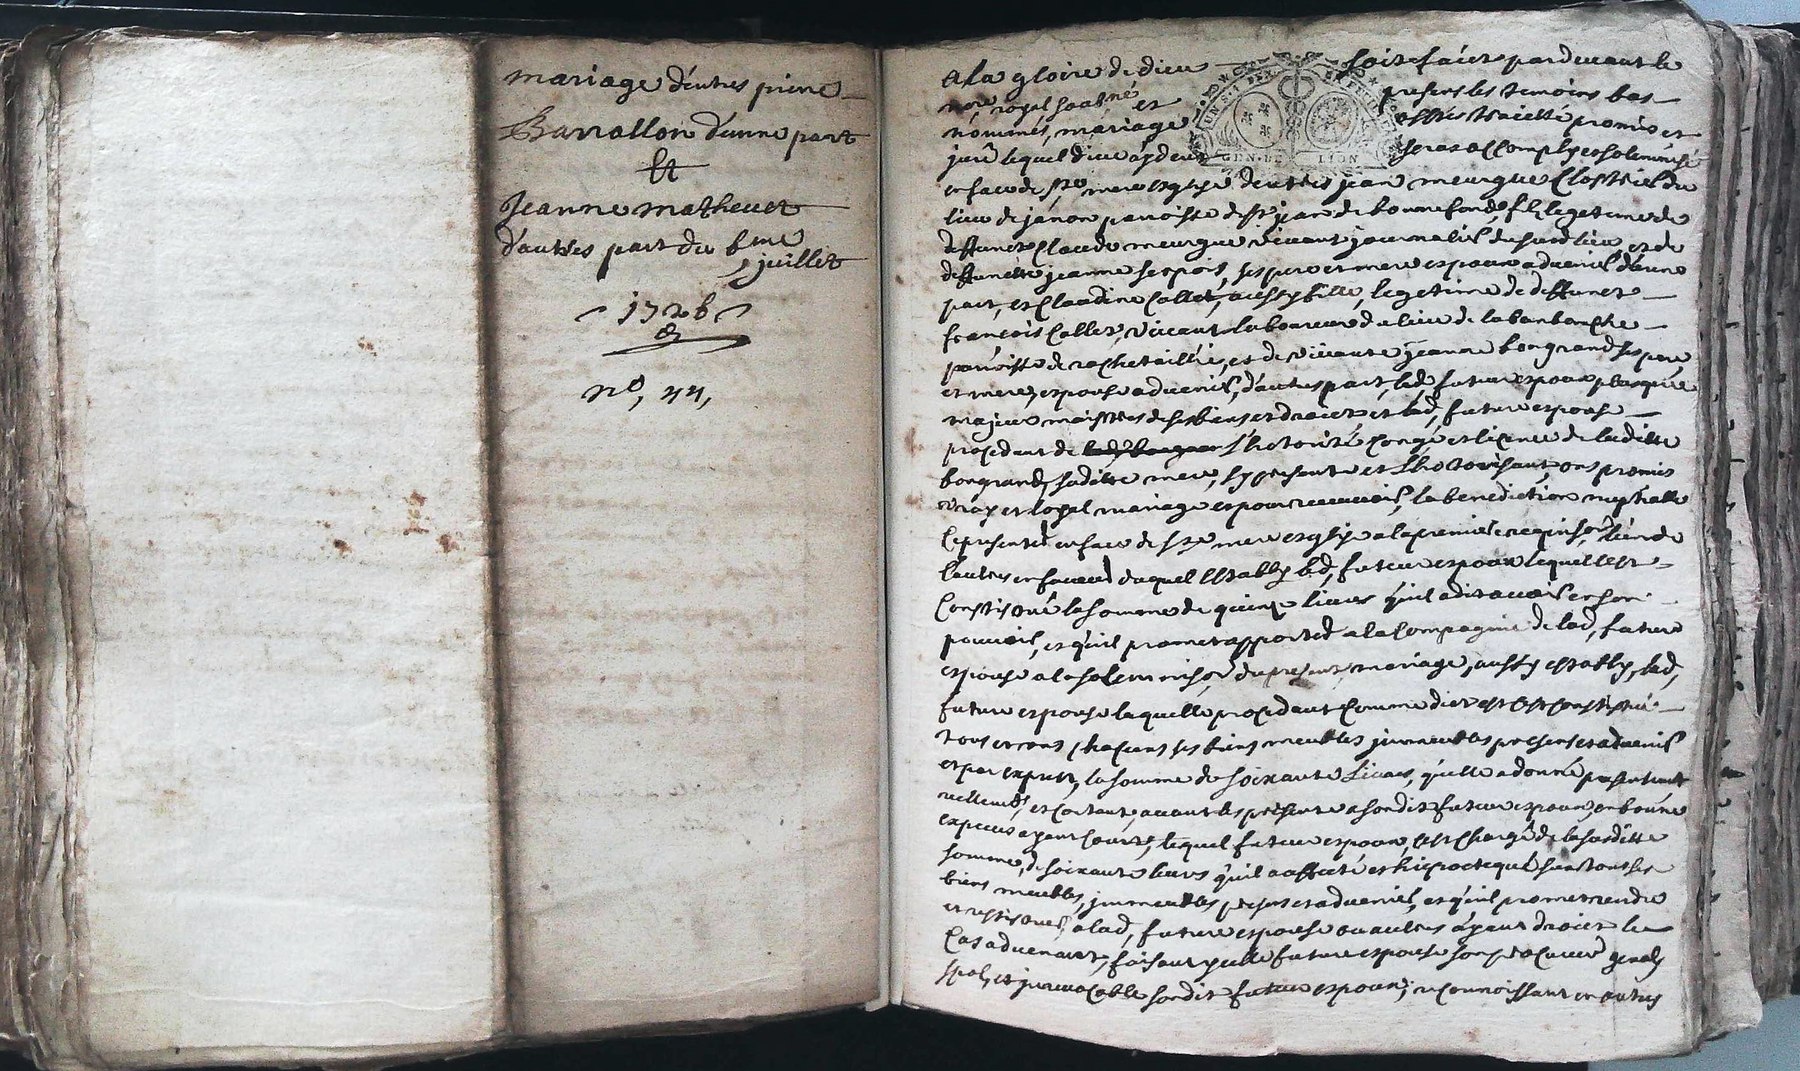 mariage d'entres pierre
Barrallon d'unne part
Et
Jeanne matheuet
d'autres part du 6me
juillet
1726
no, 44,
A la gloire de dieu soit faict pardeuant le
nore royal soubné et presens les temoins bas
nommés, mariage esté traicté promis et
juré lequel dieu aydent seras accomply et solemnisé
en face de ste mere esglize d'entres jean meurgue clostrier du
lieu de janon parroisse de st jean de bonnefond, filz legetime de
deffunct claude meurgue viuant journalier du susd lieu, et de
deffuncte jeanne ses pere et mere espoux aduenir d'une
part, et Claudine Collet, aussy fille, legetime de deffunct
francois Collet, viuant laboureur du lieu de la
parroisse de rochetaillié, et de viuante jeanne bongrand ses pere
et mere, espouse aduenir, d'autres part, led, futur espoux
majeur maistres de ses biens et droicts et lad, future espouse
procedant de l'hotorité congé et licence de laditte
bongrand saditte mere, sy presente et l'hotorisant, ont promis
vray et loyal mariage espour receuoir, la benediction nuptialle
se presenter en face de ste mere esglize a la premiere requision l'un de
l'autres en faueur duquel establi led, futur espoux lequel s'est
constitué la somme de quinze liures qu'il a dit auoir en son
pouuoir, et qu'il promet apporter a la compagnie de lad, future
espouse a la solemnison du present mariage, aussy estably, lad,
future espouse laquelle procedant comme dict est s'est constitué
tous et uns chacuns ses biens meubles jmmeubles presens et aduenir
et par exprez, la somme de soixante Liures, qu'elle a donné presentement
reellement, et contant, auant les presente a sondit futur espoux, en bonne
especes ayant cours, lequel futur espoux, s'est chargé de la susditte
somme, de soixante liures qu'il a affecté et hipotequé sur tous ses
biens meubles, jmmeubles presens et aduenir, et qu'il promet rendre
et restituer, a lad, future espouse ou aultres ayant droict le
cas aduenant, faisant ycelle future espouse son procureur geral
spal, et jrreuocable sondit futur espoux, reconnoissant en outres
GEN. DE LION